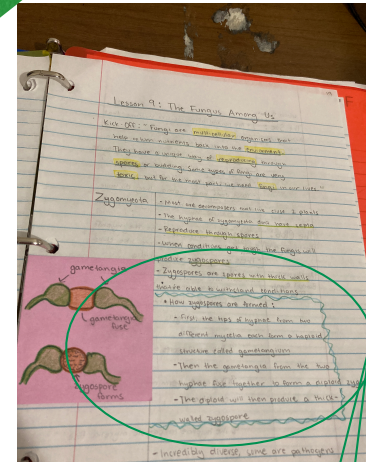 Lesson 9: The Fungus Among Us
Kick-Off: "Fungi are multicellular organisms that
help return nutrients back into the environment.
They have a unique way of reproducing through
spores or budding. Some types of fungi are very
toxic, but for the most part, we need fungi in our lives."
Zygomycota - Most are decomposers that live close to plants
- The hyphae of zygomycetes don't have septa
- Reproduce through spores
- When conditions are tough the fungus will
produce zygospores
- Zygospores are spores with thick walls
able to withstand conditions
• How zygospores are formed:
- First, the tips of hyphae from two
different mycelia each form a haploid
structure called gametangium
- Then the gametangia from the two
hyphae fuse together to form a diploid
- The diploid will then produce a thick-
walled zygospore
- Incredibly diverse, some are pathogens
gametangia
gametangia
fuse
zygospore
forms